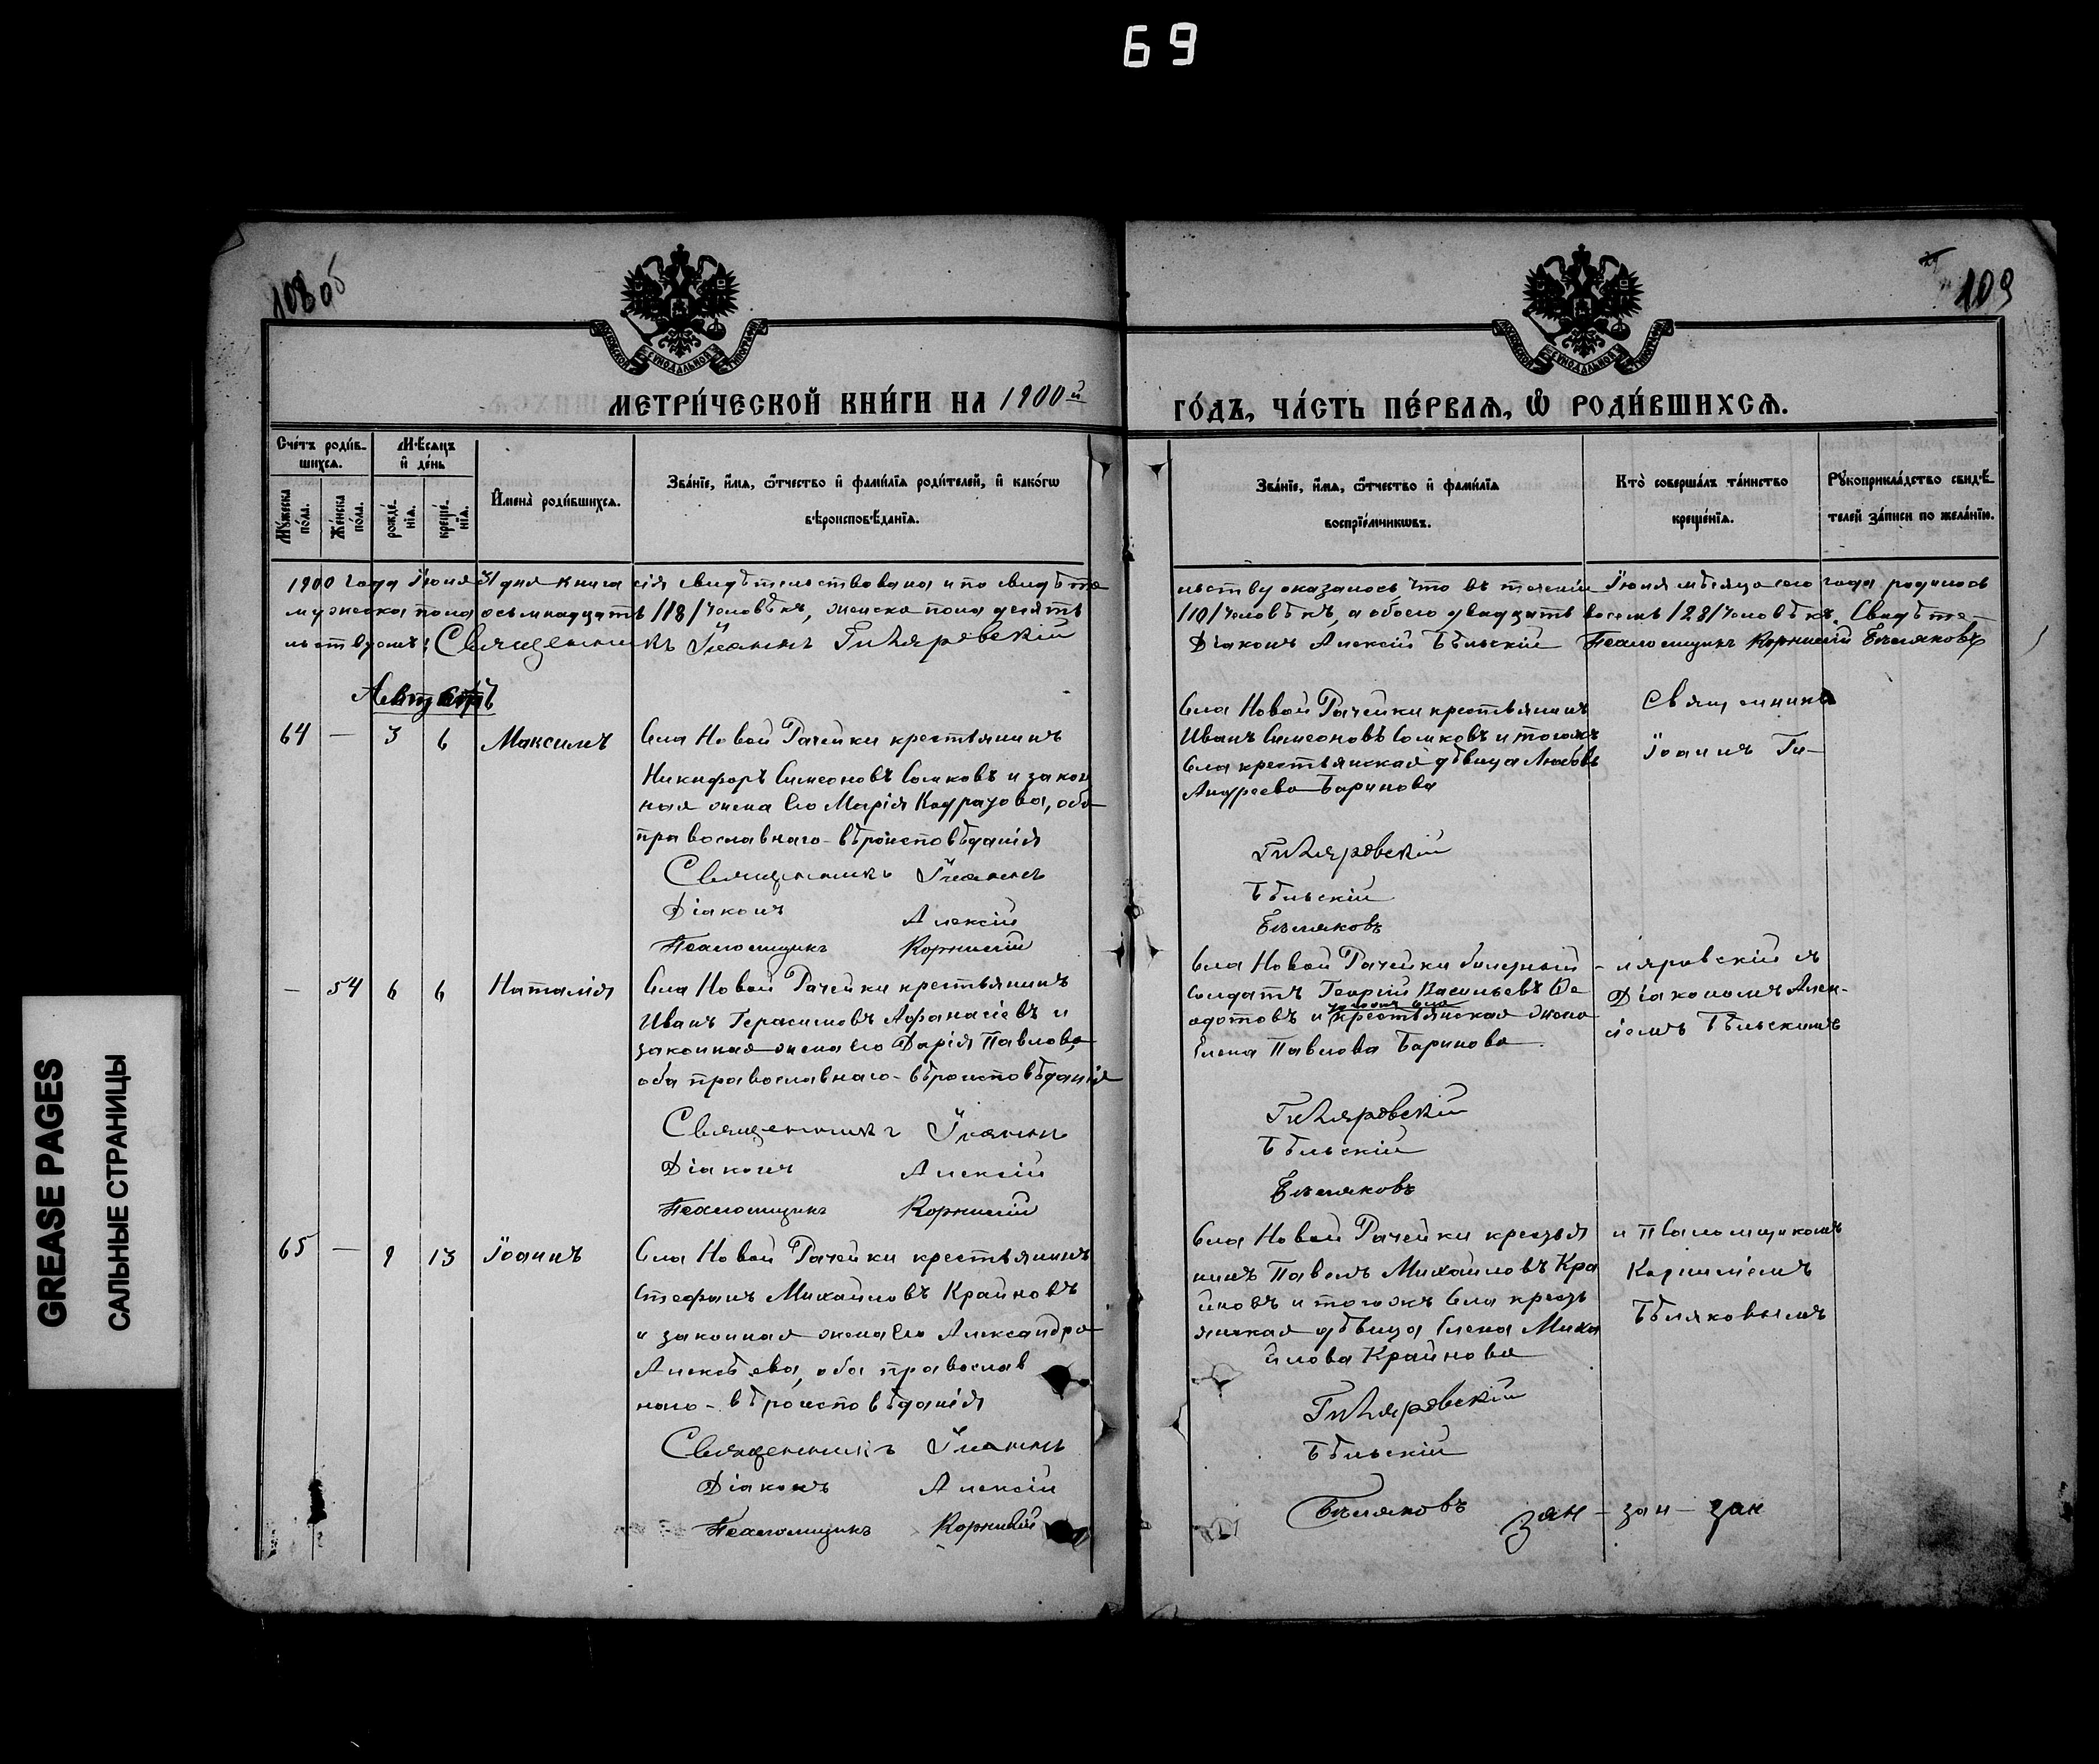 69
GREASE PAGES
САЛЬНЫЕ СТРАНИЦЫ
108 об
109
МЕТРИ́ЧЕСКОЙ КНИ́ГИ НА 1900й
ГО́ДЪ, ЧА́СТЬ ПЕ́РВАѦ, Ѽ РОДИ́ВШИХСѦ.
Сче́тъ роди́в-
шихсѧ.
Мѣ́сѧцъ
и҆ де́нь
Мꙋ́жеска по́ла.
Же́нска по́ла.
рожде́-нїѧ.
креще́-нїѧ.
И҆мена̀ роди́вшихсѧ.
Зва́нїе, и҆́мѧ, ѻ҆́тчество и҆ фами́лїѧ роди́телей, и҆ како́гѡ
вѣроисповѣ́данїѧ.
Зва́нїе, и҆́мѧ, ѻ҆́тчество и҆ фами́лїѧ
воспрїе́мникѡвъ.
Кто̀ соверша́лъ та́инство
креще́нїѧ.
Рꙋкоприкла́дство свидѣ́-
телей за́писи по жела́нїю.
1900 года Іюля 31 дня книга сія свидѣтельствована и по свидѣте
льству оказалось, что въ теченіи Іюля мѣсяца сего года родилось
мужеска пола осьмнадцать /18/ человѣкъ, женска пола десять
/10/ человѣкъ, а обоего двадцать восемь /28/ человѣкъ. Свидѣте-
льствуемъ: Священникъ Іоаннъ Гиляровскій
Діаконъ Алексій Бѣльскій Псаломщикъ Корнилій Бѣляковъ
Августъ
64 — 3 6 Максимъ
Села Новой Рачейки крестьянинъ
Никифоръ Симеоновъ Сомковъ и закон
ная жена его Марія Кодразова, оба
православнаго-вѣроисповѣданія
Священникъ Іоаннъ
Діаконъ Алексій
Псаломщикъ Корнилій
Села Новой Рачейки крестьянинъ
Иванъ Симеоновъ Сомковъ и тогожъ
села крестьянская дѣвица Любовь
Андреева Баринова
Гиляровскій
Бѣльскій
Бѣляковъ
Священникъ
Іоаннъ Ги-
— 54 6 6 Наталія
Села Новой Рачейки крестьянинъ
Иванъ Герасимовъ Афанасіевъ и
законная жена его Дарія Павлова,
оба православнаго-вѣроисповѣданія
Священникъ Іоаннъ
Діаконъ Алексій
Псаломщикъ Корнилій
Села Новой Рачейки
солдатъ Георгій Васильевъ Ѳе
одотовъ и крестьянская жена
Елена Павлова Баринова
Гиляровскій
Бѣльскій
Бѣляковъ
-ляровскій съ
Діакономъ Алек-
сіемъ Бѣльскимъ
65 — 9 13 Іоаннъ
Села Новой Рачейки крестьянинъ
Стефанъ Михайловъ Крайновъ
и законная жена его Александра
Алексѣева, оба православ
наго-вѣроисповѣданія
Священникъ Іоаннъ
Діаконъ Алексій
Псаломщикъ Корнилій
Села Новой Рачейки крестья
нинъ Павелъ Михайловъ Кра
йновъ и тогожъ села кресть
янская дѣвица Елена Миха
йлова Крайнова
Гиляровскій
Бѣльскій
Бѣляковъ
и Псаломщикомъ
Корниліемъ
Бѣляковымъ
зан - зан - зан